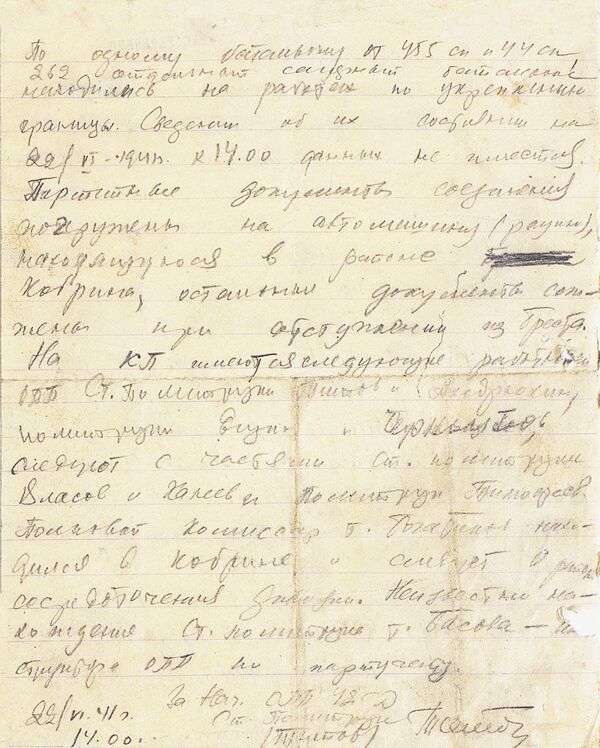 По одному батальону от 455 сп и 44 сп,
262 отдельный саперный батальоне
находились на работах по укреплению
границы. Сведении об их состоянии на
22/VI-1941г. к 14.00 данных не имеется.
Партийные документы соединения
погружены на автомашину (рацию),
находящуюся в районе
Кобрина, остальные документы сож-
жены при отступлении из Бреста.
На КП имеются следующие работники
ОПП Ст. Политруки Титов и
политруки и
следуют с частями Ст. политруки
Власов и и Политрук Тимофеев.
Полковой комиссар т. нахо-
дился в Кобрине и следует в район
сосредоточения Неизвестно на-
хождение Ст. политрука т. Басова – ин-
структора ОПП по партучету.
За Нач. ОПП 42 СД
22/VI.41г. Ст. Политрук
14.00. (Титов)